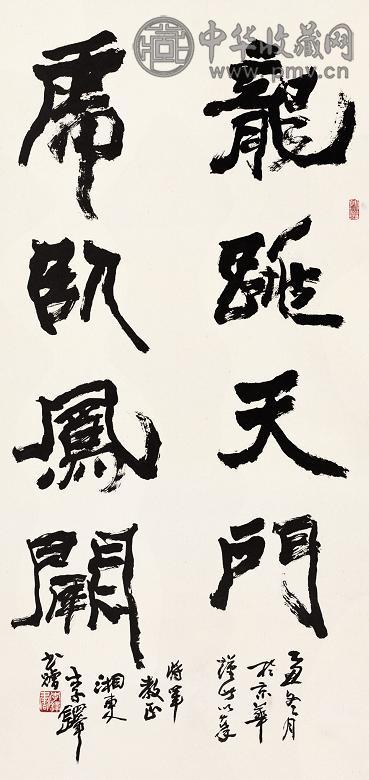 中华收藏网
www.pmv.cn
龍跳天門
虎臥鳳闕
乙丑冬月
於京華
以奉
将軍
教正
湘東
李鐸